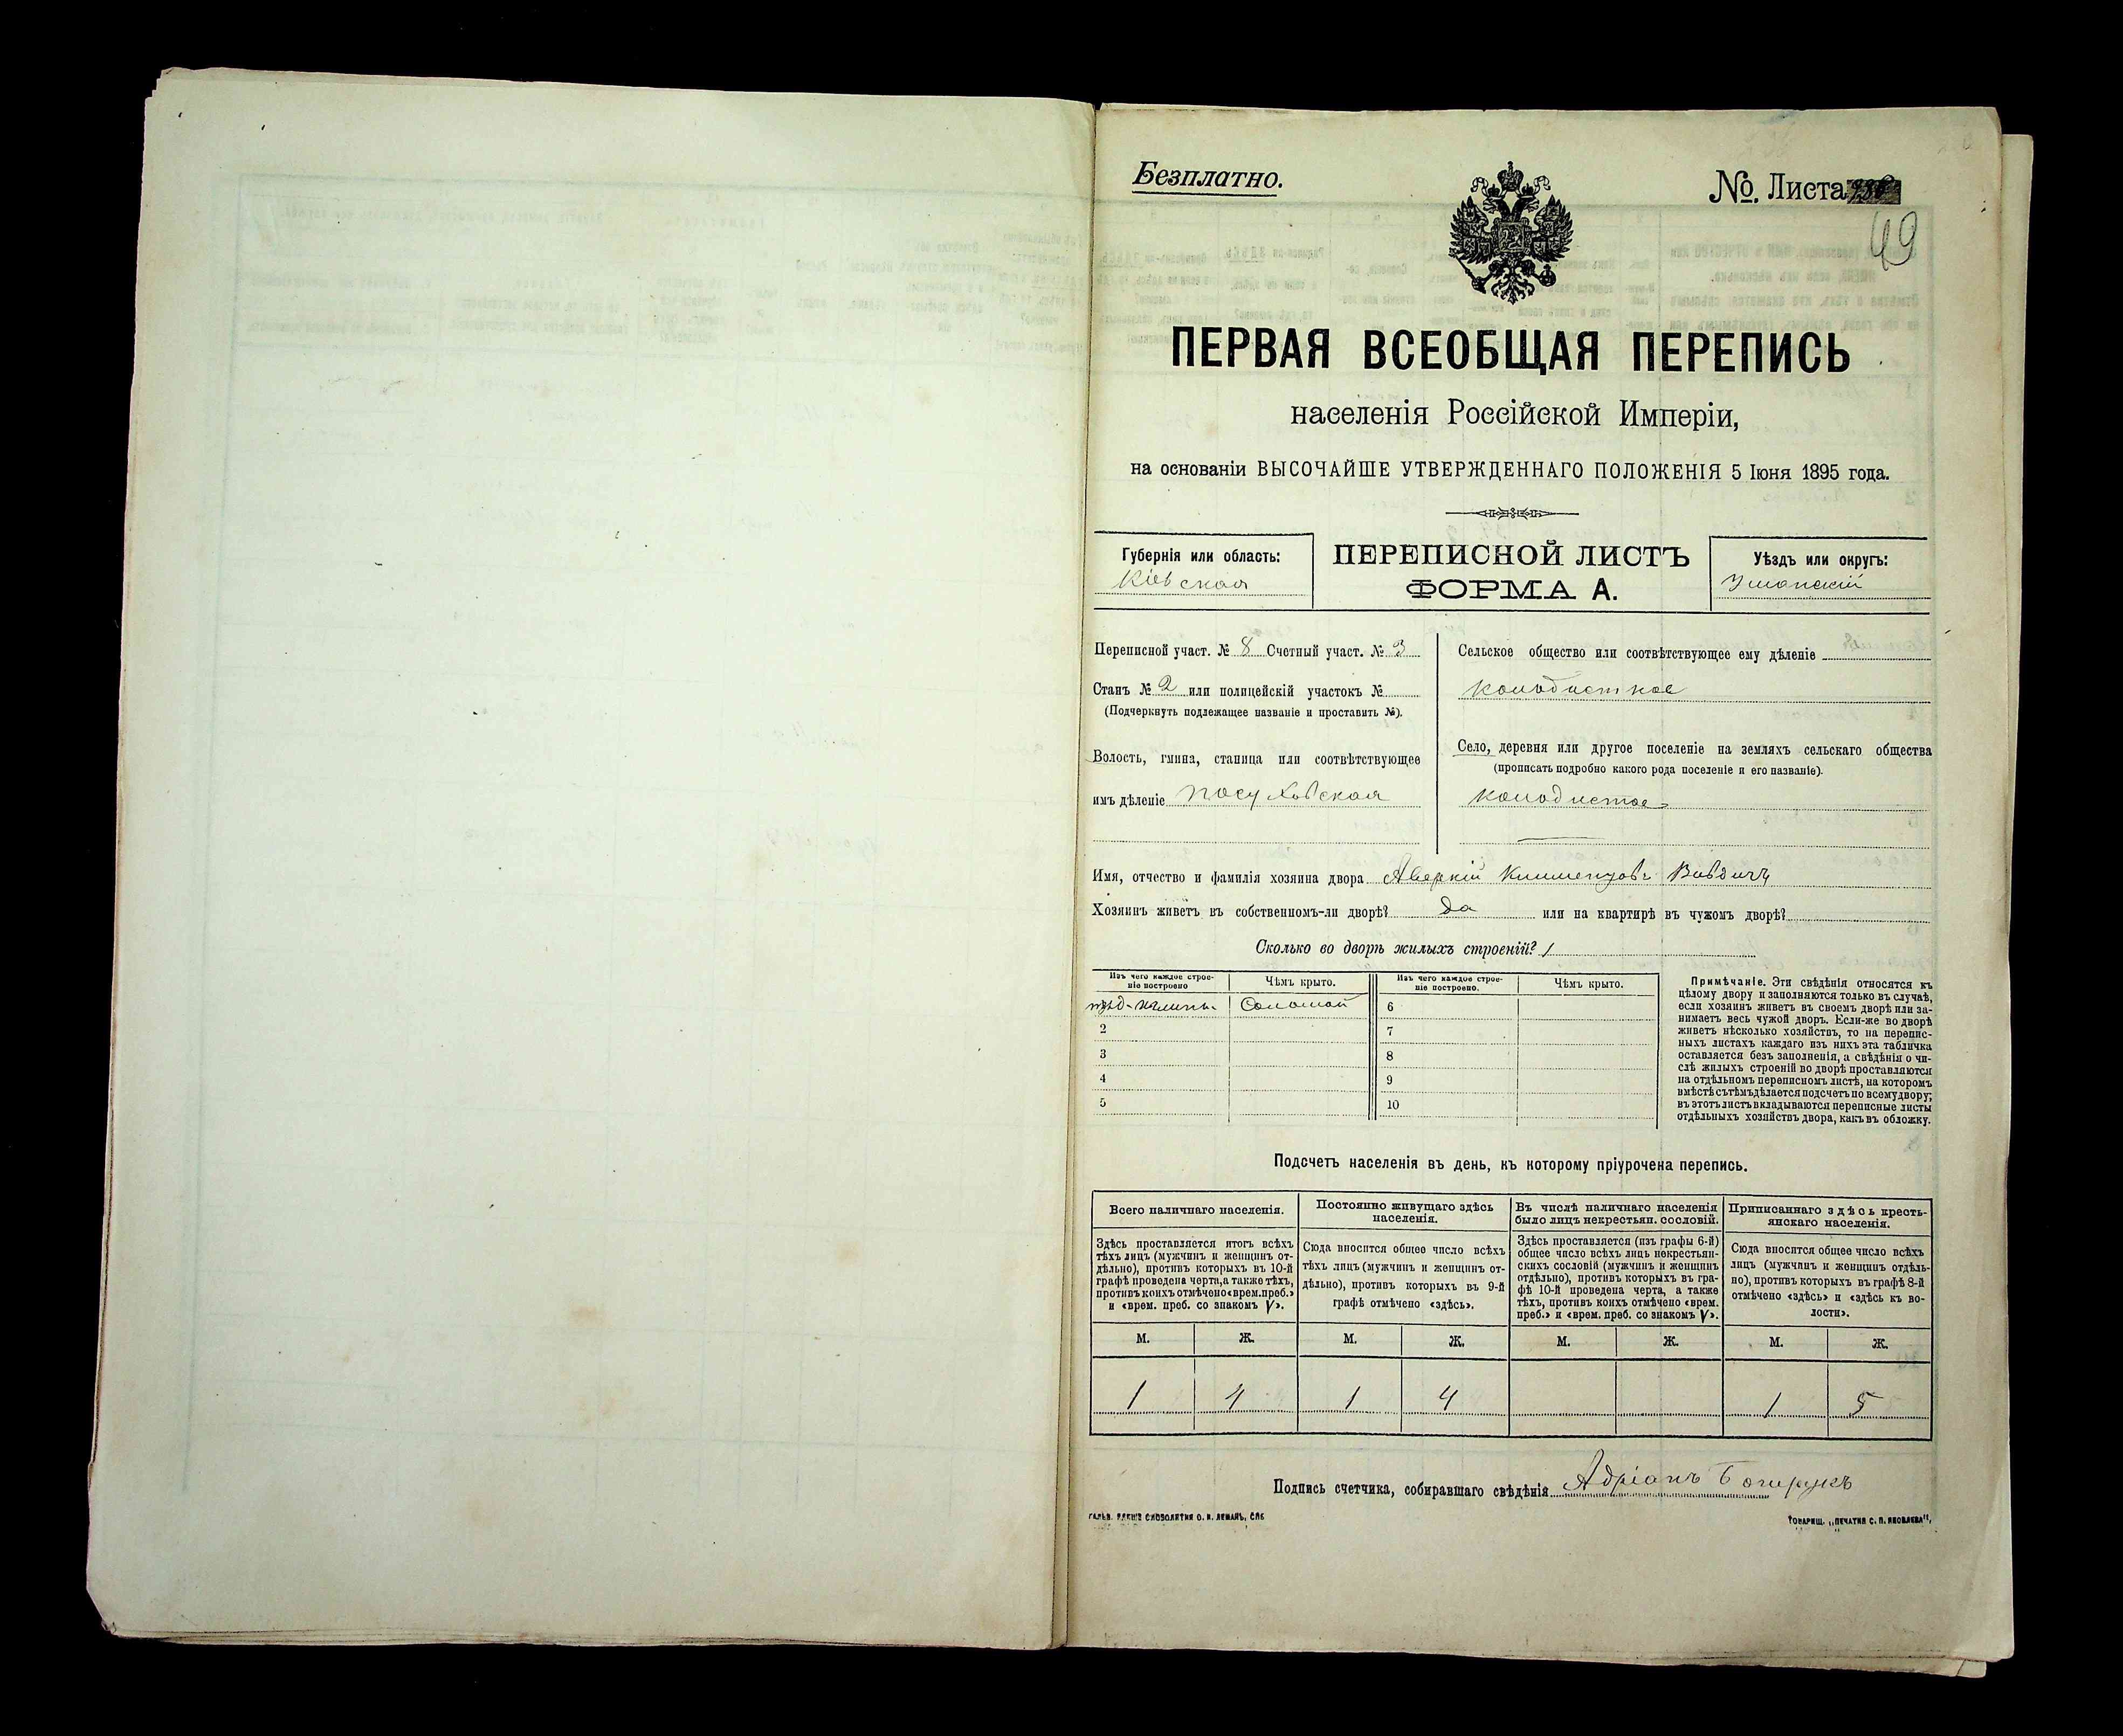 Безплатно.
№. Листа
49
ПЕРВАЯ ВСЕОБЩАЯ ПЕРЕПИСЬ
населенія Россійской Имперіи,
на основаніи ВЫСОЧАЙШЕ УТВЕРЖДЕННАГО ПОЛОЖЕНІЯ 5 Іюня 1895 года.
Губернія или область:
Кіевская
ПЕРЕПИСНОЙ ЛИСТЪ
ФОРМА А.
Уѣздъ или округъ:
Уманскій
Переписной участ. № 8 Счетный участ. № 3
Станъ № 2 или полицейскій участокъ №
(Подчеркнуть подлежащее названіе и проставить №).
Волость, гмина, станица или соотвѣтствующее
имъ дѣленіе Посуховская
Сельское общество или соотвѣтствующее ему дѣленіе
Колодисткое
Село, деревня или другое поселеніе на земляхъ сельскаго общества
(прописать подробно какого рода поселеніе и его названіе).
Колодистое
Имя, отчество и фамилія хозяина двора Аверкій Климентовъ Вивдичъ
Хозяинъ живетъ въ собственномъ-ли дворѣ? да или на квартирѣ въ чужомъ дворѣ?
Сколько во дворѣ жилыхъ строеній? 1
Изъ чего каждое строе-
ніе построено
Чѣмъ крыто.
Изъ чего каждое строе-
ніе построено.
Чѣмъ крыто.
Соломой 6
2 7
3 8
4 9
5 10
Примѣчаніе. Эти свѣдѣнія относятся къ
цѣлому двору и заполняются только въ случаѣ,
если хозяинъ живетъ въ своемъ дворѣ или за-
нимаетъ весь чужой дворъ. Если-же во дворѣ
живетъ нѣсколько хозяйствъ, то на перепис-
ныхъ листахъ каждаго изъ нихъ эта табличка
оставляется безъ заполненія, а свѣдѣнія о чи-
слѣ жилыхъ строеній во дворѣ проставляются
на отдѣльномъ переписномъ листѣ, на которомъ
вмѣстѣ съ тѣмъ дѣлается подсчетъ по всему двору;
въ этотъ листъ вкладываются переписные листы
отдѣльныхъ хозяйствъ двора, какъ въ обложку.
Подсчетъ населенія въ день, къ которому пріурочена перепись.
Всего наличнаго населенія.
Здѣсь проставляется итогъ всѣхъ
тѣхъ лицъ (мужчинъ и женщинъ от-
дѣльно), противъ которыхъ въ 10-й
графѣ проведена черта, а также тѣхъ,
противъ коихъ отмѣчено «врем. преб.»
и «врем. преб. со знакомъ V».
Постоянно живущаго здѣсь
населенія.
Сюда вносится общее число всѣхъ
тѣхъ лицъ (мужчинъ и женщинъ от-
дѣльно), противъ которыхъ въ 9-й
графѣ отмѣчено «здѣсь».
Въ числѣ наличнаго населенія
было лицъ некрестьян. сословій.
Здѣсь проставляется (изъ графы 6-й)
общее число всѣхъ лицъ некрестьян-
скихъ сословій (мужчинъ и женщинъ
отдѣльно), противъ которыхъ въ гра-
фѣ 10-й проведена черта, а также
тѣхъ, противъ коихъ отмѣчено «врем.
преб.» и «врем. преб. со знакомъ V».
Приписаннаго здѣсь кресть-
янскаго населенія.
Сюда вносится общее число всѣхъ
лицъ (мужчинъ и женщинъ отдѣль-
но), противъ которыхъ въ графѣ 8-й
отмѣчено «здѣсь» и «здѣсь къ во-
лости».
М. Ж. М. Ж. М. Ж. М. Ж.
1 4 1 4 1 5
Подпись счетчика, собиравшаго свѣдѣнія Адріанъ
ГАЛЬВ. КЛИШЕ СЛОВОЛИТНИ О. И. ЛЕМАНЪ, СПБ
ТОВАРИЩ. „ПЕЧАТНЯ С. П. ЯКОВЛЕВА“,